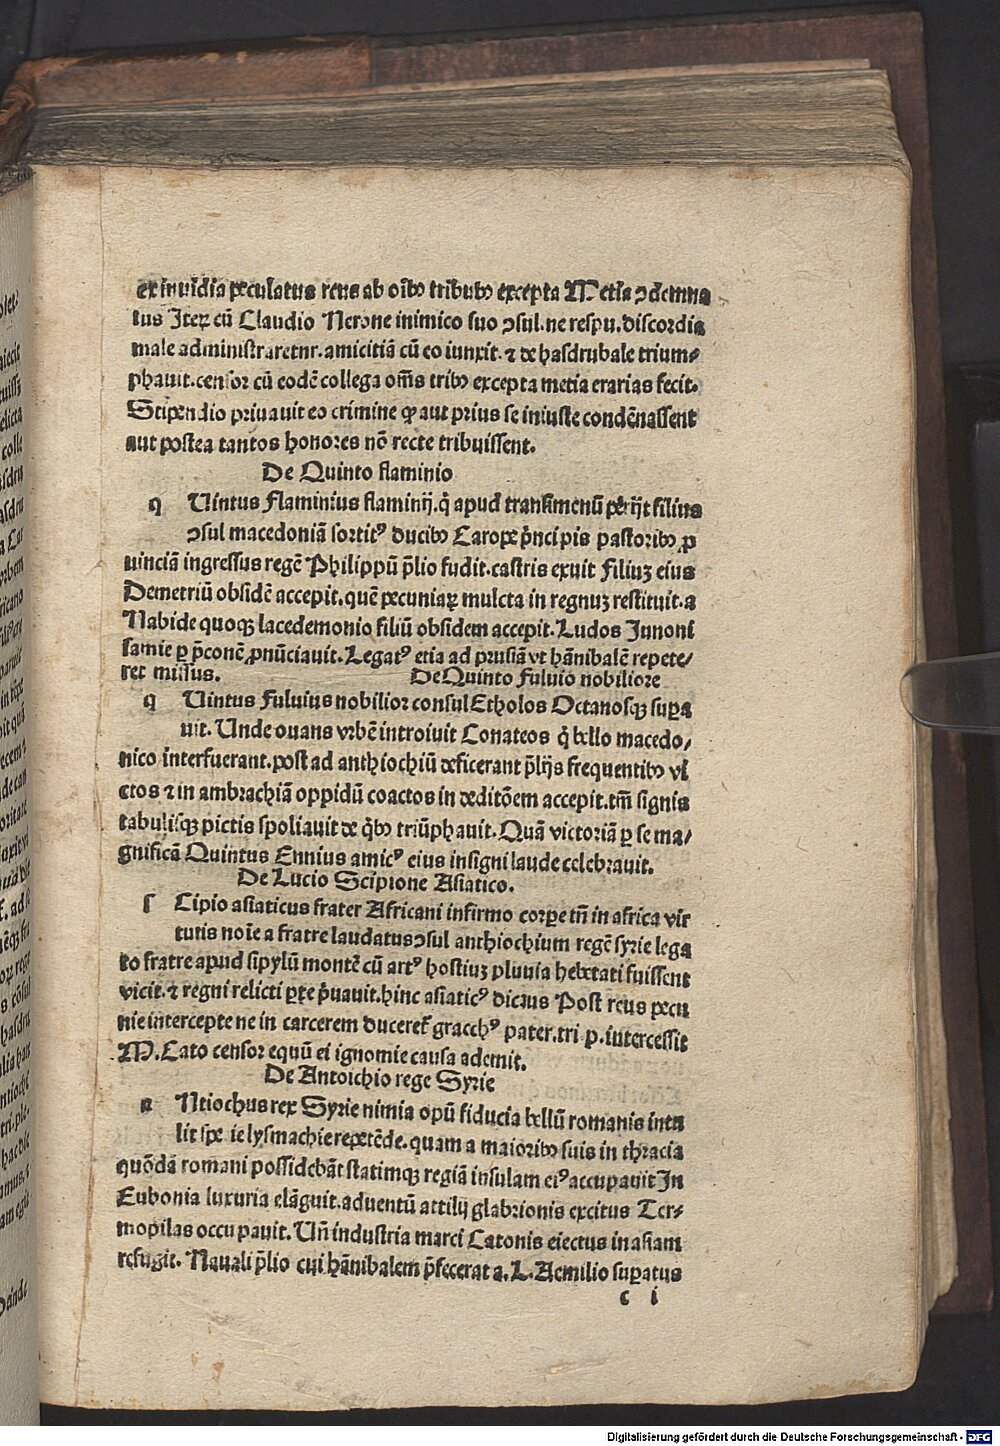 ex inuidia peculatus reus ab oībꝰ tribubꝰ excepta Metia ↄdemna
tus Iteꝝ cū Claudio Nerone inimico suo ↄsul. ne respu. discordia
male administraretnr. amicitiā cū eo iunxit. ⁊ de hasdrubale trium⸗
phauit. censor cū eodē collega om̄s tribꝰ excepta metia erarias fecit.
Stipendio priuauit eo crimine ꝙ aut prius se iniuste condēnassent
aut postea tantos honores nō recte tribuissent.
De Quinto flaminio
q Uintus Flaminius flaminij. q̄ apud transimenū ꝑerijt filius
ↄsul macedoniā sortitꝰ ducibꝰ Carope p̄ncipis pastoribꝰ ꝓ
uinciā ingressus regē Philippū p̄lio fudit. castris exuit Filiuʒ eius
Demetriū obsidē accepit. quē pecuniaꝝ mulcta in regnuʒ restituit. a
Nabide quoqꝫ lacedemonio filiū obsidem accepit. Ludos Junoni
samie ꝑ p̄conē ꝓnūciauit. Legatꝰ etia ad prusiā vt hānibalē repete/
ret missus. De Quinto Fuluio nobiliore
q Uintus Fuluius nobilior consul Etholos Octanosqꝫ suꝑa
uit. Unde ouans vrbē introiuit Conateos q̄ bello macedo/
nico interfuerant. post ad anthiochiū deficerant p̄lijs frequentibꝰ vi
ctos ⁊ in ambrachiā oppidū coactos in deditōem accepit. tm̄ signis
tabulisqꝫ pictis spoliauit de q̄bꝰ triūphauit. Quā victoriā ꝑ se ma/
gnificā Quintus Ennius amicꝰ eius insigni laude celebrauit.
De Lucio Scipione Asiatico.
ſ Cipio asiaticus frater Africani infirmo corꝑe tn̄ in africa vir
tutis noīe a fratre laudatus ↄsul anthiochium regē syrie lega
to fratre apud sipylū montē cū artꝰ hostiuʒ pluuia hebetati fuissent
vicit. ⁊ regni relicti ꝑte p̄uauit. hinc asiaticꝰ dictus Post reus pecu
nie intercepte ne in carcerem duceret̄ gracchꝰ pater. tri. p. intercessit
M. Cato censor equū ei ignomie causa ademit.
De Antoichio rege Syrie
a Ntiochus rex Syrie nimia opū fiducia bellū romanis intu
lit spe ie lysmachie repetēde. quam a maioribꝰ suis in thracia
quōdā romani possidebāt statimqꝫ regiā insulam eiꝰ accupauit In
Eubonia luxuria elāguit. aduentū attilij glabrionis excitus Ter⸗
mopilas occupauit. Un̄ industria marci Catonis eiectus in asiam
refugit. Nauali p̄lio cui hānibalem p̄fecerat a. L. Aemilio suꝑatus
c i
Digitalisierung gefördert durch die Deutsche Forschungsgemeinschaft - DFG